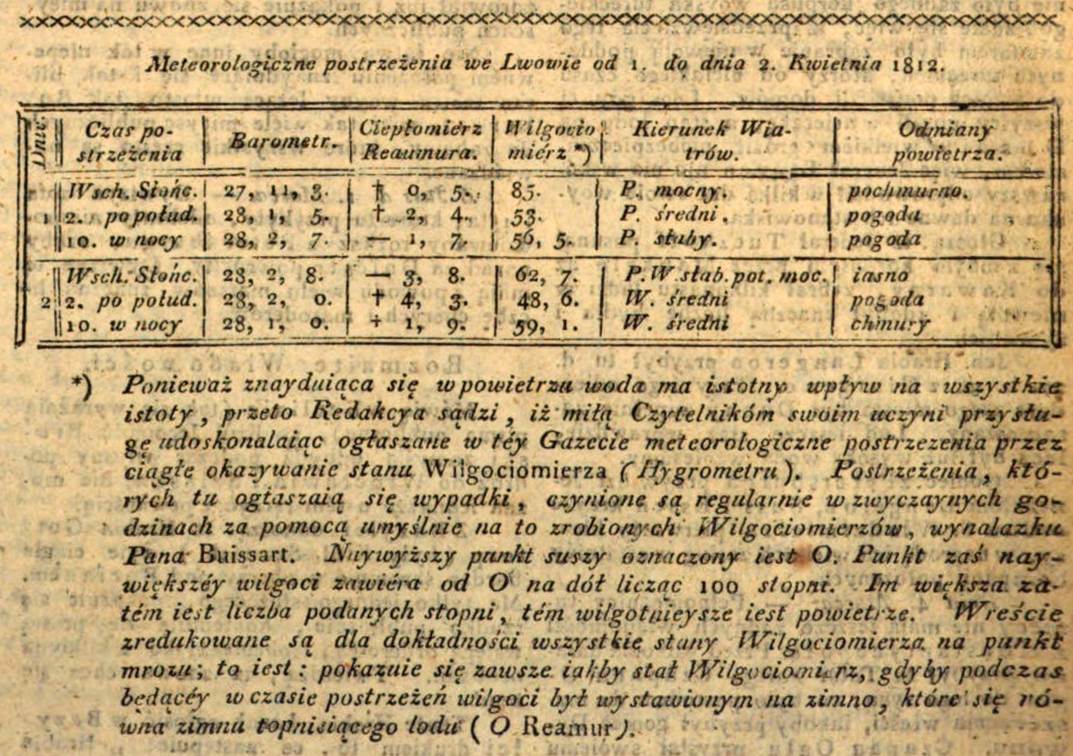 Meteorologiczne postrzeżenia we Lwowie od 1. do dnia 2. Kwietnia 1812.
Dnie Czas po-strzeżenia Barometr. Ciepłomiérz Reaumura. Wilgocio miérz *) Kierunek Wia-trów. Odmiany powietrza.
Wsch. Słońc. 27, 11, 3. † 0, 5. 85. P. mocny. pochmurno.
1 2. po połud. 28, 1, 5. † 2, 4. 53. P. średni. pogoda
10. w nocy 28, 2, 7. — 1, 7. 56, 5. P. słaby. pogoda
Wsch. Słońc. 28, 2, 8. — 3, 8. 62, 7. P. W. słab. pot. moc. iasno
2 2. po połud. 28, 2, 0. † 4, 3. 48, 6. W. średni pogoda
10. w nocy 28, 1, 0. + 1, 9. 59, 1. W. średni chmury
*) Ponieważ znayduiąca się w powietrzu woda ma istotny wpływ na wszystkie
istoty, przeto Redakcya sądzi, iż miłą Czytelnikóm swoim uczyni przysłu-
gę udoskonalaiąc ogłaszane w téy Gazecie meteorologiczne postrzezenia przez
ciągłe okazywanie stanu Wilgociomierza (Hygrometru). Postrzeżenia, któ-
rych tu ogłaszaią się wypadki, czynione są regularnie w zwyczaynych go-
dzinach za pomocą umyślnie na to zrobionych Wilgociomierzów, wynalazku
Pana Buissart. Naywyższy punkt suszy oznaczony iest O. Punkt zaś nay-
większéy wilgoci zawiéra od O na dół licząc 100 stopni. Im większa za-
tém iest liczba podanych stopni, tém wilgotnieysze iest powietrze. Wreście
zredukowane są dla dokładności wszystkie stany Wilgociomierza na punkt
mrozu; to iest: pokazuie się zawsze iakby stał Wilgociomierz, gdyby podczas
będącéy w czasie postrzeżeń wilgoci był wystawionym na zimno, które się ró-
wna zimnu topniejącego lodu (O Reamur).